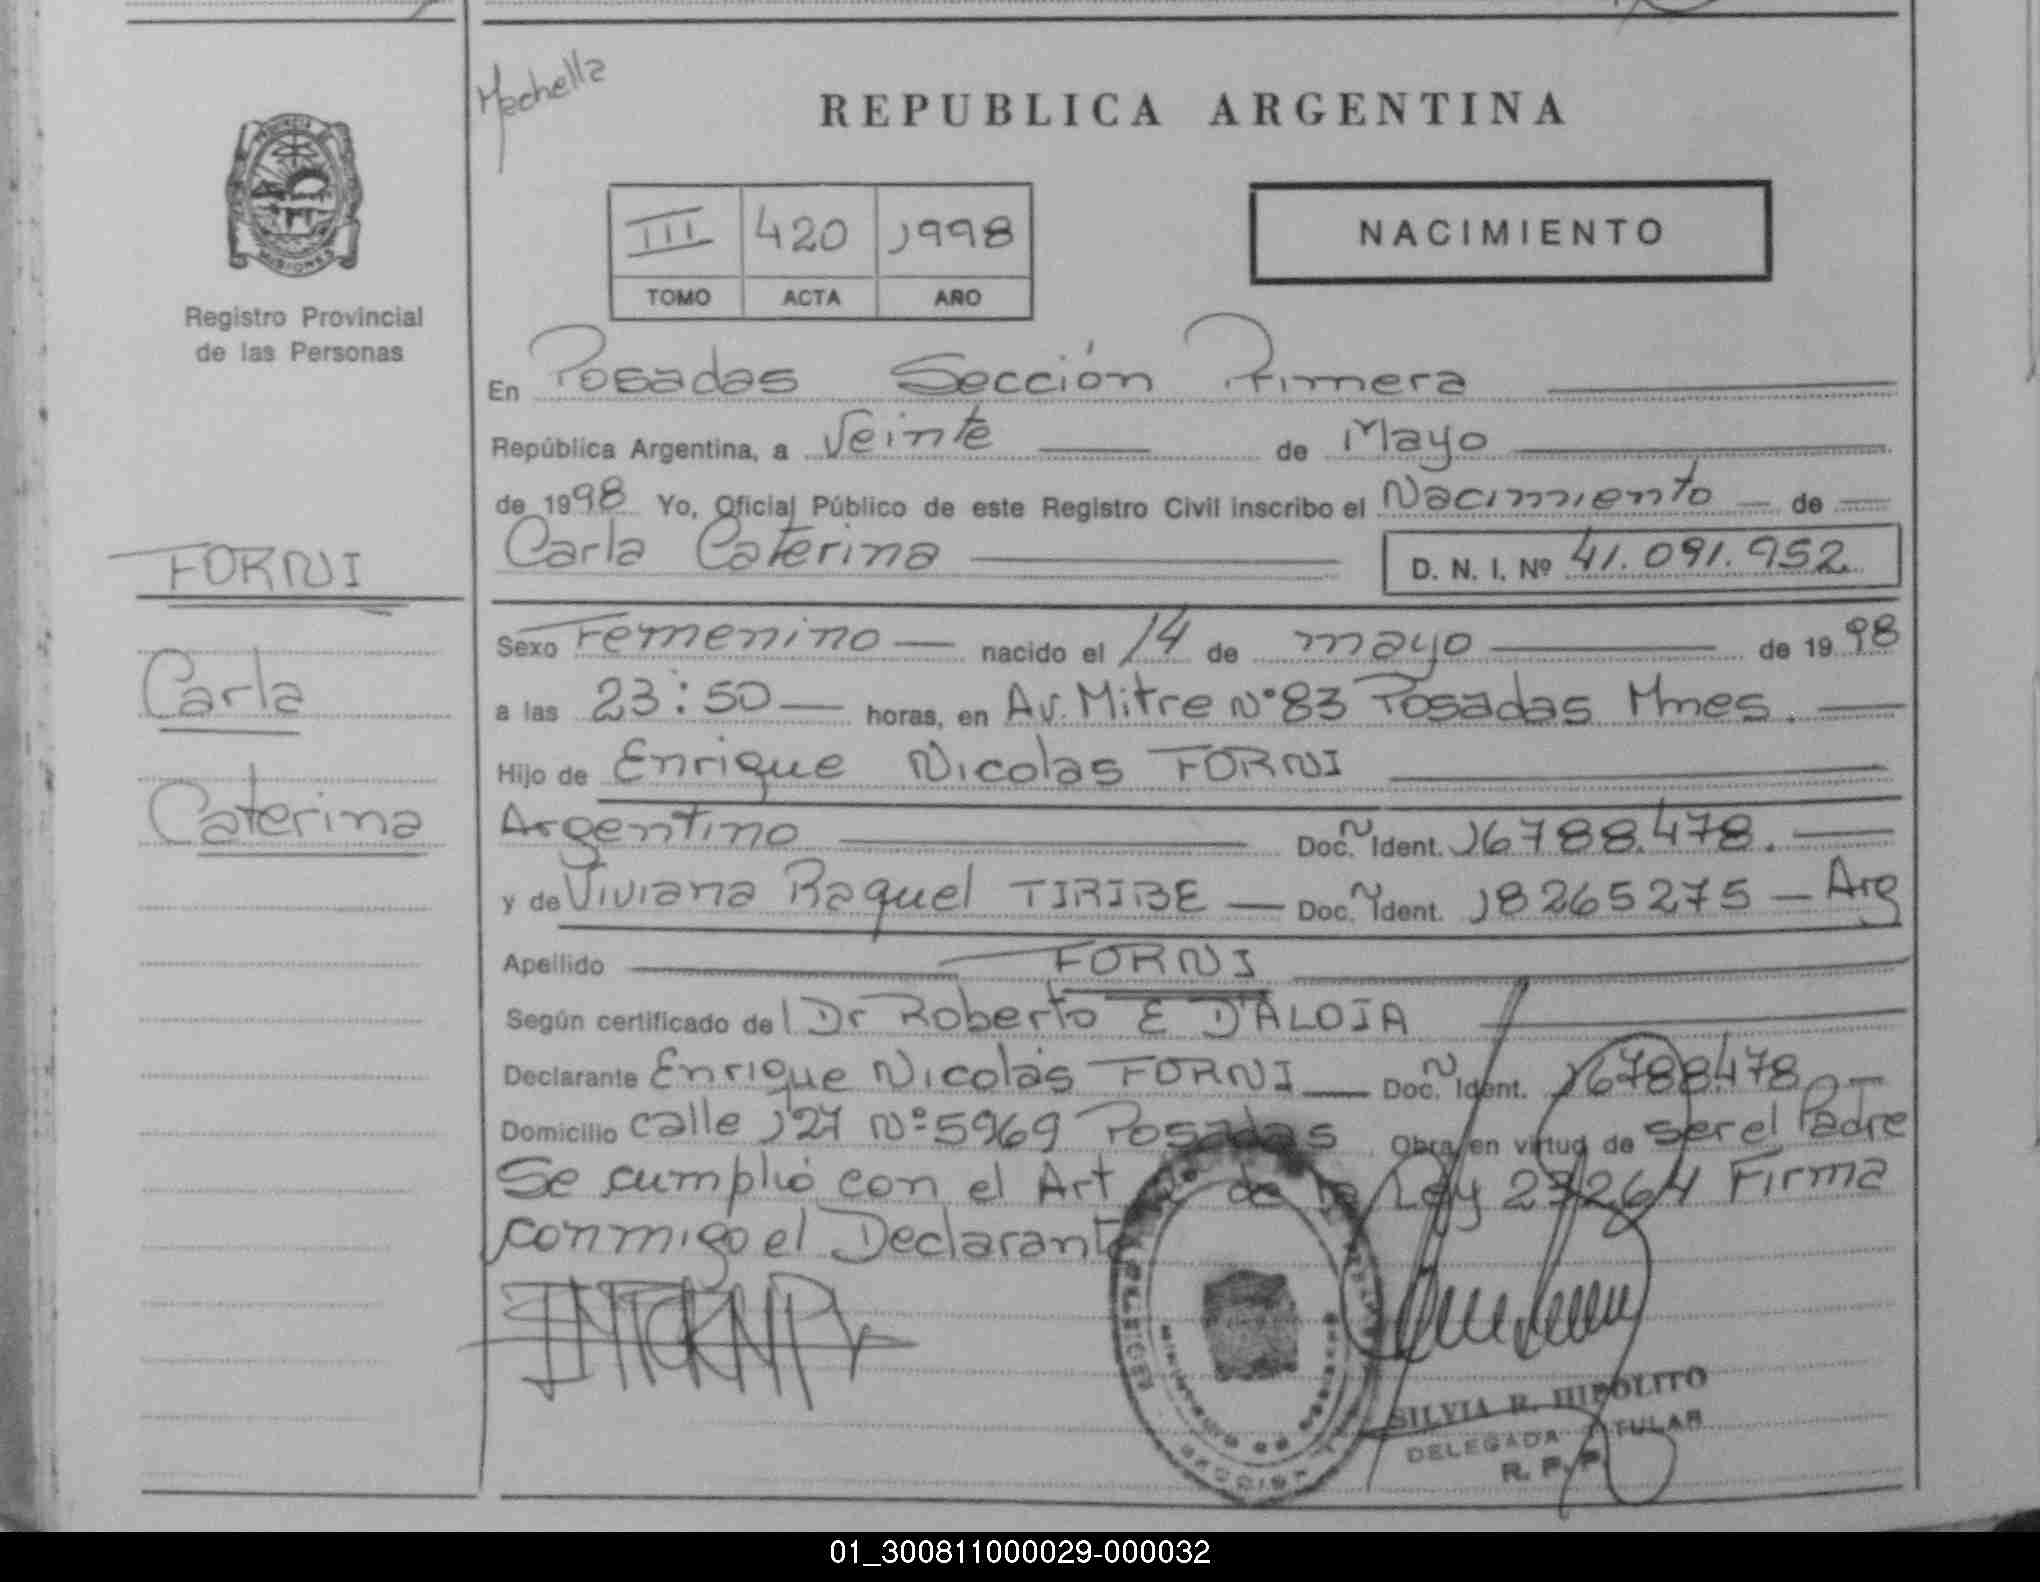 Mechella
REPUBLICA ARGENTINA
PROVINCIA DE
MISIONES
Registro Provincial
de las Personas
III 420 1998
TOMO ACTA AÑO
NACIMIENTO
En Posadas Sección Primera
República Argentina, a Veinte de Mayo
de 1998 Yo, Oficial Público de este Registro Civil inscribo el Nacimiento de
Carla Caterina D. N. I. Nº 41.091.952
FORNI
Carla
Caterina
Sexo Femenino nacido el 14 de mayo de 1998
a las 23:50 horas, en Av. Mitre Nº 83 Posadas Mnes.
Hijo de Enrique Nicolas FORNI
Argentino Doc. Ident. 16788.478.
y de Viviana Raquel TIRIBE Doc. Ident. 18265275 - Arg
Apellido FORNI
Según certificado del Dr Roberto E D'ALOIA
Declarante Enrique Nicolás FORNI Doc. Ident. 16788478
Domicilio calle 127 Nº 5969 Posadas Obra en virtud de ser el Padre
Se cumplió con el Art de la Ley 27264 Firma
conmigo el Declarante
SILVIA R. HIPOLITO
DELEGADA TITULAR
R. P. P.
01_300811000029-000032